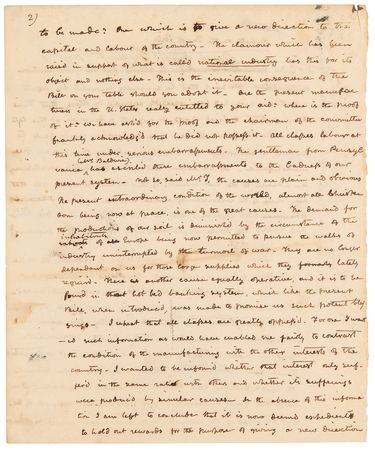 2)
to be made? One which is to give a new direction to the
capital and labour of the country - The clamour which has been
raised in support of what is called national industry has this for its
object and nothing else - This is the inevitable consequence of the
Bill on your table should you adopt it - Are the present manufac
tures in the U. States really entitled to your aid? where is the proof
of it? We have ask'd for the proof and the chairman of the committee
frankly acknowledg'd that he did not possess it. All classes labour at
this time under serious embarrassments. The gentleman from Pensyl
(Mr. Baldwin)
vania, has ascrib'd these embarrassments to the badness of our
present system - Not so, said Mr. T, the causes are plain and obvious
The present extraordinary condition of the world, almost all Christen
dom being now at peace, is one of the great causes. The demand for
the productions of our soil is diminish'd by the circumstance of the
inhabitants
of Europe being now permitted to pursue the walks of
industry uninterrupted by the turmoil of war - They are no longer
dependant on us for those large supplies which they lately
requir'd. There is another cause equally operative, and it is to be
found in that hot bed banking system, which like the present
Bill, when introduc'd, was made to promise us such potent bles
sings - I repeat that all classes are greatly oppress'd. For one I want
- ed such information as would have enabled me fairly to contrast
the condition of the manufacturing with the other interests of the
country - I wanted to be inform'd whether that interest only suf-
fer'd in the same ratio with others and whether its sufferings
were produc'd by similar causes. In the absence of this informa
tion I am left to conclude that it is now deem'd expedient
to hold out rewards for the purpose of giving a new direction